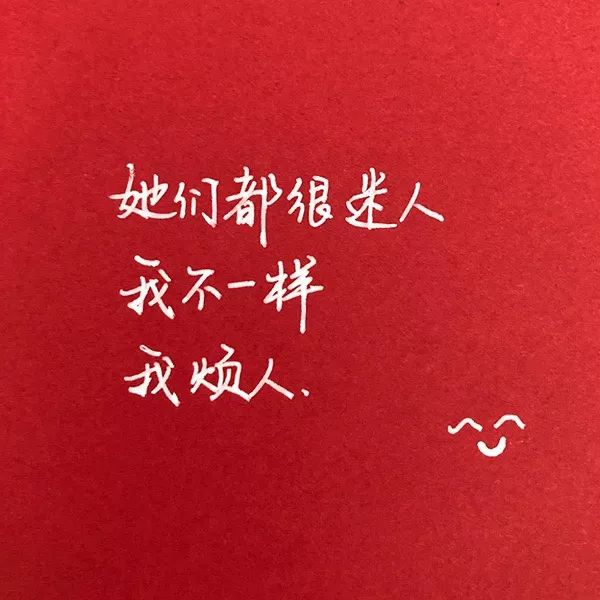 她们都很迷人
我不一样
我烦人.